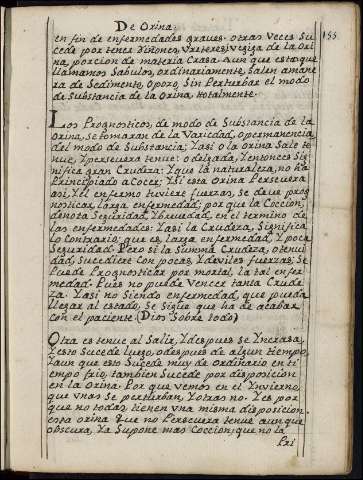 De Orina.
155.
en fin de enfermedades graves. otras veces Su
cede por tener Riñones, Vreteres, Vegiga de la Ori
na, porcion de materia Crasa. Aun que esta que
llamamos Sabulos, ordinariamente, Salen amane
ra de Sedimento, O poso, Sin Perturbar el modo
de Substancia de la Orina totalmente.
Los Prognosticos, de modo de Substancia de la
Orina, Se tomaran de la Variedad, o permanencia
del modo de Substancia; Y asi o la Orina Sale te
nue, Y persevera tenue: o delgada, Y entonces Sig
nifica gran Crudeza: Y que la naturaleza, no ha
Principiado a Cocer; Y Si esta Orina Persevera
asi, Y el enfermo tuviere fuerzas, Se deve prog
nosticar, larga enfermedad; por que la Coccion,
denota Seguridad, Y brevedad, en el termino de
las enfermedades: Y asi la Crudeza, Significa
lo Contrario, que es, larga enfermedad, Y poca
Seguridad. Pero Si la Summa Crudeza, o tenui
dad, Sucediere con pocas, Y deviles fuerzas, Se
Puede Prognosticar por mortal, la tal enfer
medad. Pues no puede Vencer tanta Crude
za. Y asi no Siendo enfermedad, que pueda
llegar al estado, Se Sigue que ha de acabar
con el paciente. (Dios Sobre todo)
Otra es tenue al Salir, Y despues Se Yncrasa,
Y esto Sucede luego, o despues de algun tiempo,
Y aun que esto Sucede muy de Ordinario en ti
empo frio, tambien Sucede por disposicion
en la Orina. Por que vemos en el Ynvierno,
que Vnas Se perturban, Y otras no. Y es por
que no todas tienen Vna misma disposicion.
esta Orina que no Persevera tenue aunque
obscura, Ya Supone mas Coccion; que no la
Pri